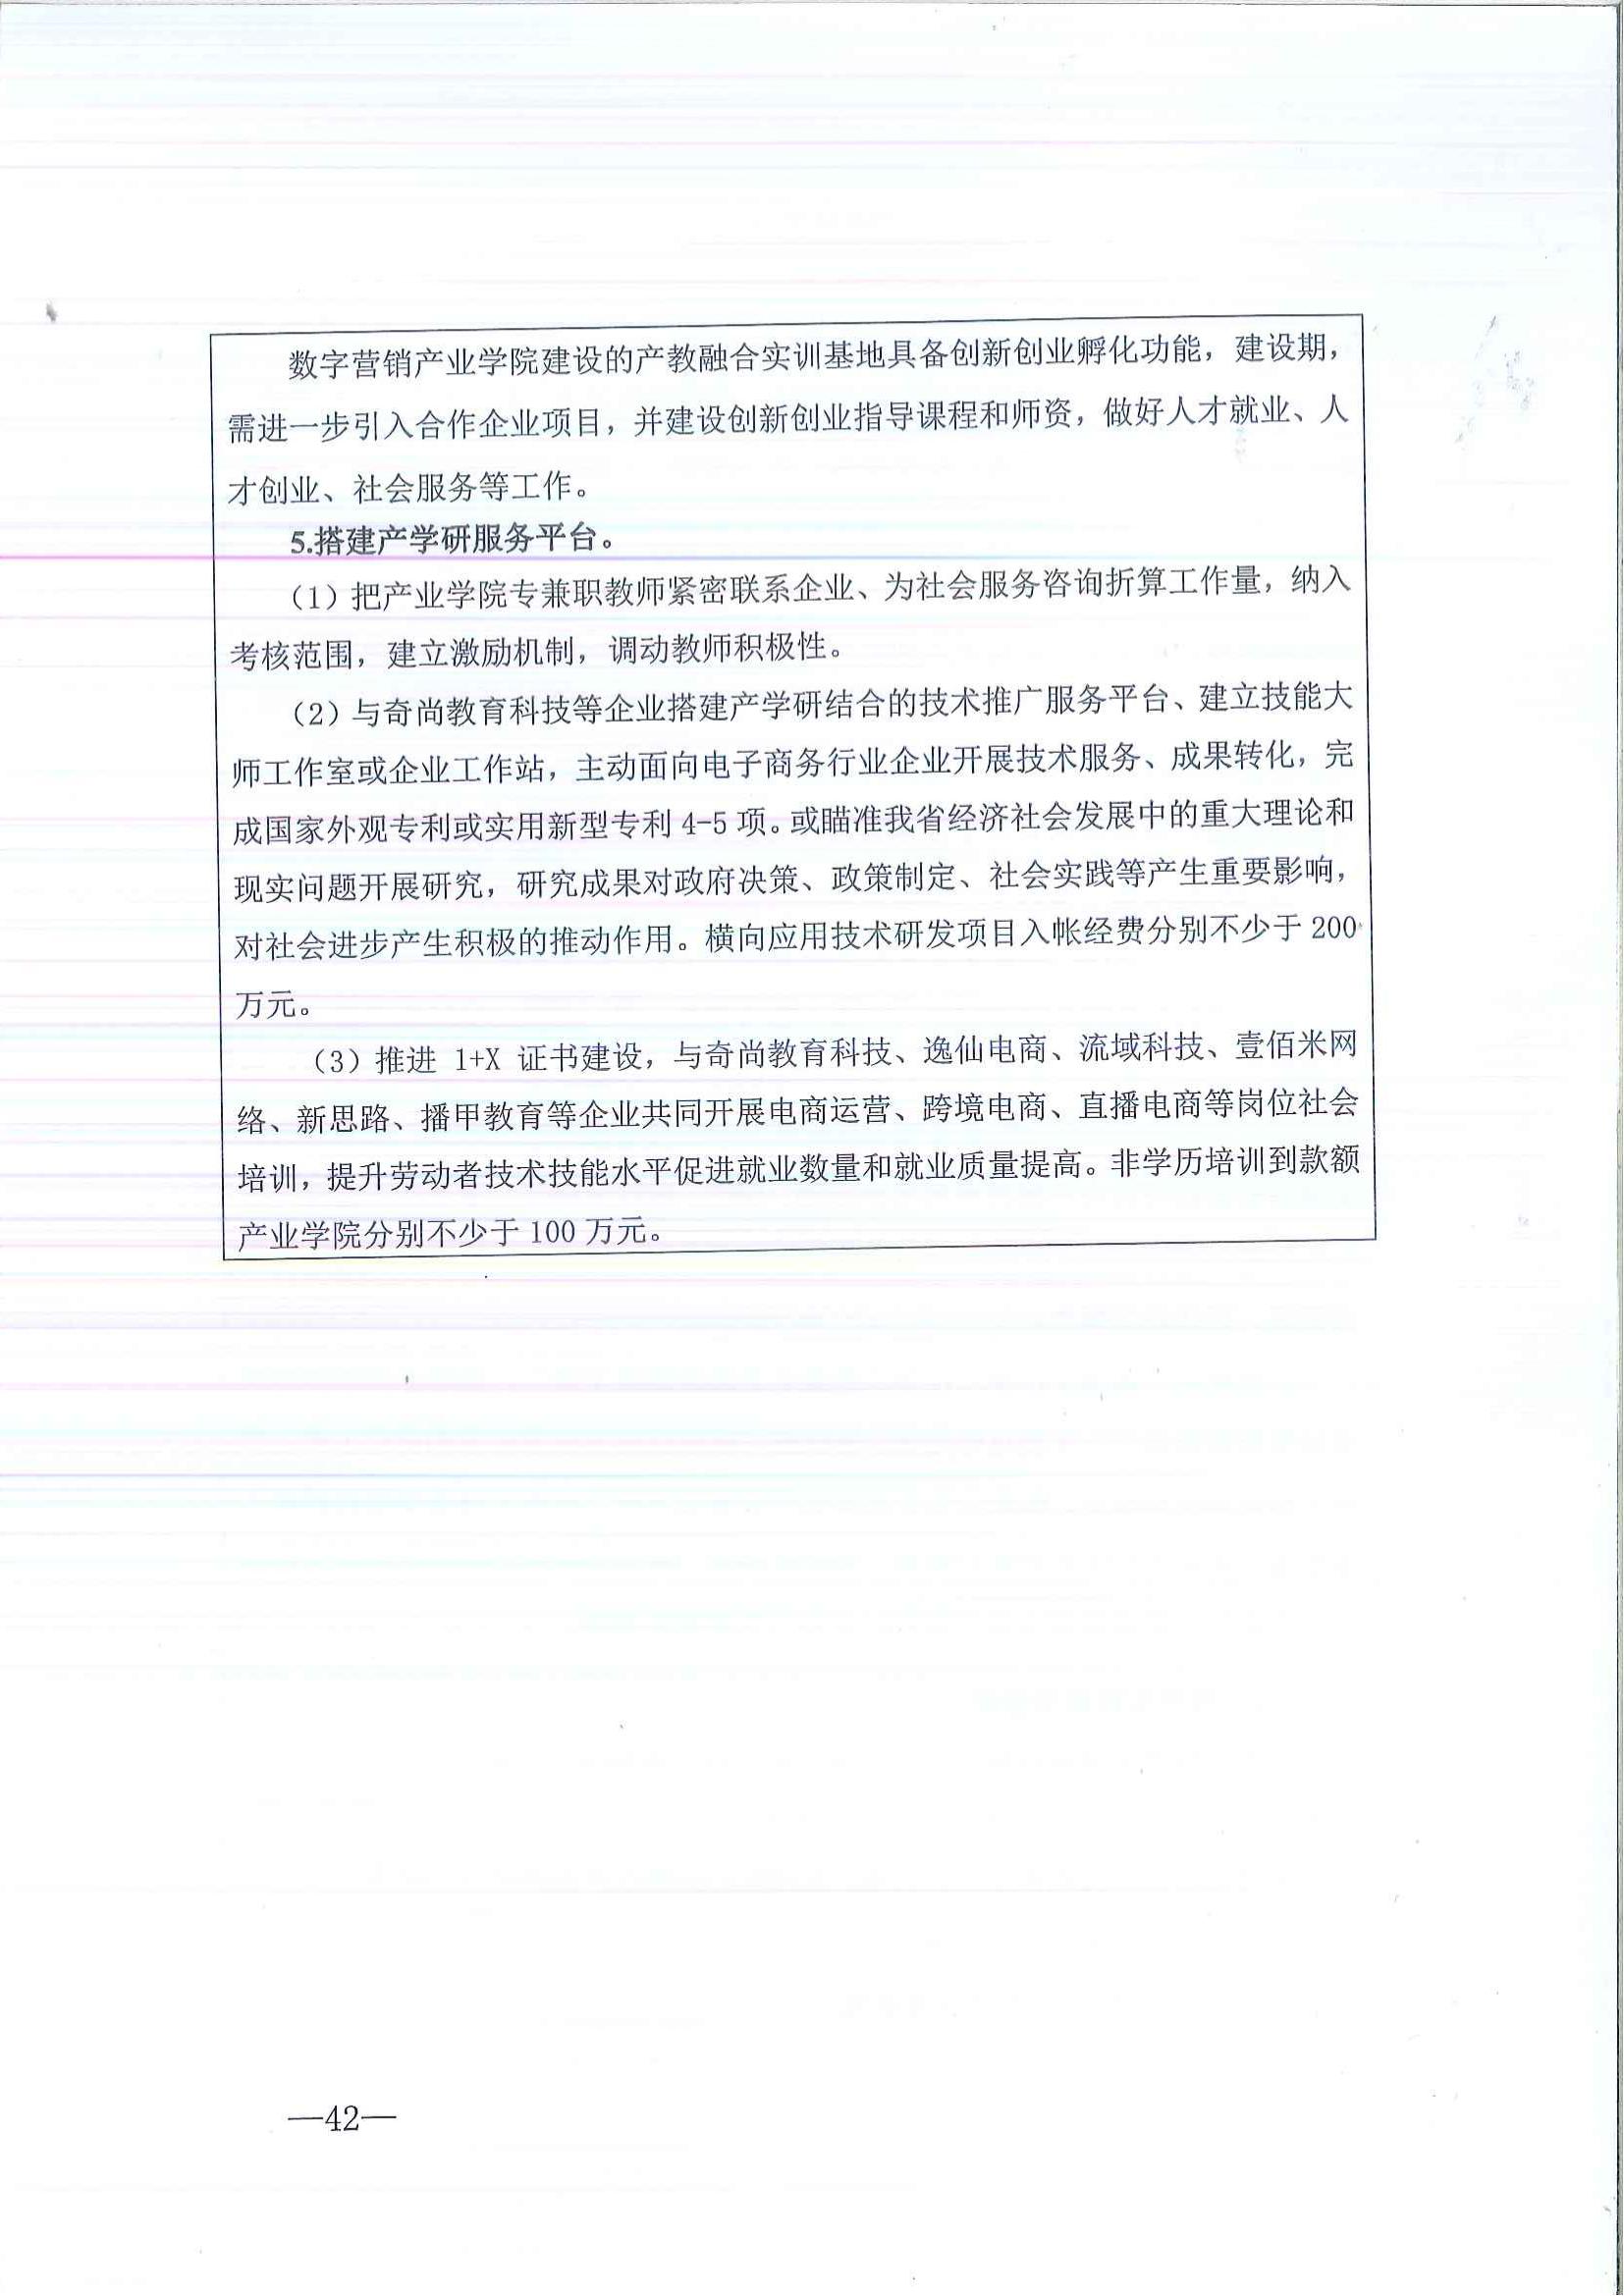 数字营销产业学院建设的产教融合实训基地具备创新创业孵化功能，建设期，
需进一步引入合作企业项目，并建设创新创业指导课程和师资，做好人才就业、人
才创业、社会服务等工作。
5.搭建产学研服务平台。
（1）把产业学院专兼职教师紧密联系企业、为社会服务咨询折算工作量，纳入
考核范围，建立激励机制，调动教师积极性。
（2）与奇尚教育科技等企业搭建产学研结合的技术推广服务平台、建立技能大
师工作室或企业工作站，主动面向电子商务行业企业开展技术服务、成果转化，完
成国家外观专利或实用新型专利 4-5 项。或瞄准我省经济社会发展中的重大理论和
现实问题开展研究，研究成果对政府决策、政策制定、社会实践等产生重要影响，
对社会进步产生积极的推动作用。横向应用技术研发项目入帐经费分别不少于 200
万元。
（3）推进 1+X 证书建设，与奇尚教育科技、逸仙电商、流域科技、壹佰米网
络、新思路、播甲教育等企业共同开展电商运营、跨境电商、直播电商等岗位社会
培训，提升劳动者技术技能水平促进就业数量和就业质量提高。非学历培训到款额
产业学院分别不少于 100 万元。
—42—